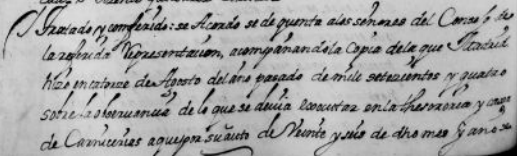 Tratado y conferido: se Acordo se de quenta a los señores del Consejo de
la referida Representacion, acompañandola Copia de la que Madrid
hizo en catorze de Agosto del año pasado de mile setecientos y quatro
sobre la observancia de lo que se devia executar en la thesoreria y
de Carnicerias a que por su auto de Veinte y seis de dho mes y año se